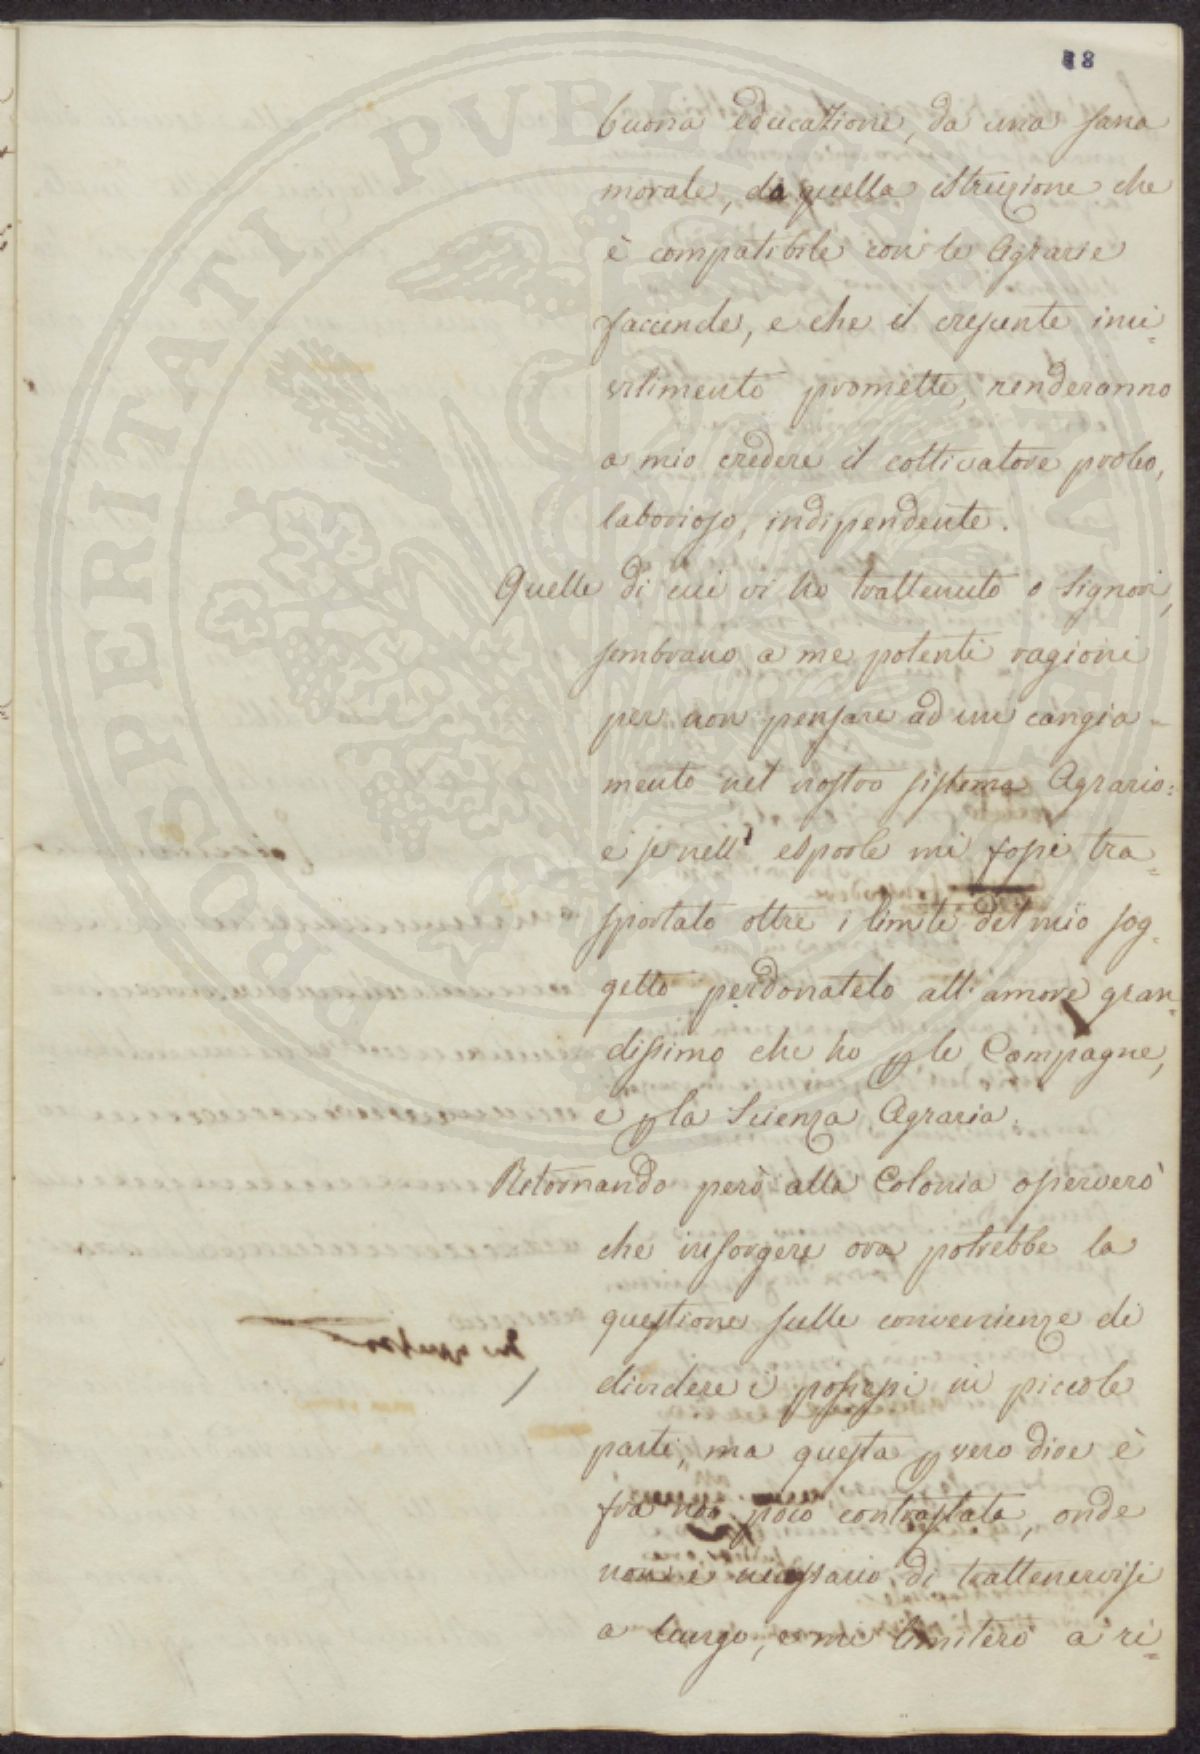 18
buona educazione, da una sana
morale, da quella istruzione che
è compatibile con le Agrarie
faccende, e che il crescente inci-
vilimento promette, renderanno
a mio credere il coltivatore probo,
laborioso, indipendente.
Quelle di cui vi ho trattenuto o Signori,
sembrano a me potenti ragioni
per non pensare ad un cangia-
mento nel nostro sistema Agrario:
e se nell' esporle mi fossi tra-
sportato oltre i limiti del mio sog-
getto perdonatelo all' amore gran-
dissimo che ho p le Campagne,
e p la Scienza Agraria.
Ritornando però alla Colonia osserverò
che insorgere ora potrebbe la
questione sulle convenienze di
dividere i possessi in piccole
parti, ma questa p vero dire è
fra noi poco contrastata, onde
non è necessario di trattenervisi
a lungo, e mi limiterò a ri-
PROSPERITATI PVBLICAE AVGENDAE